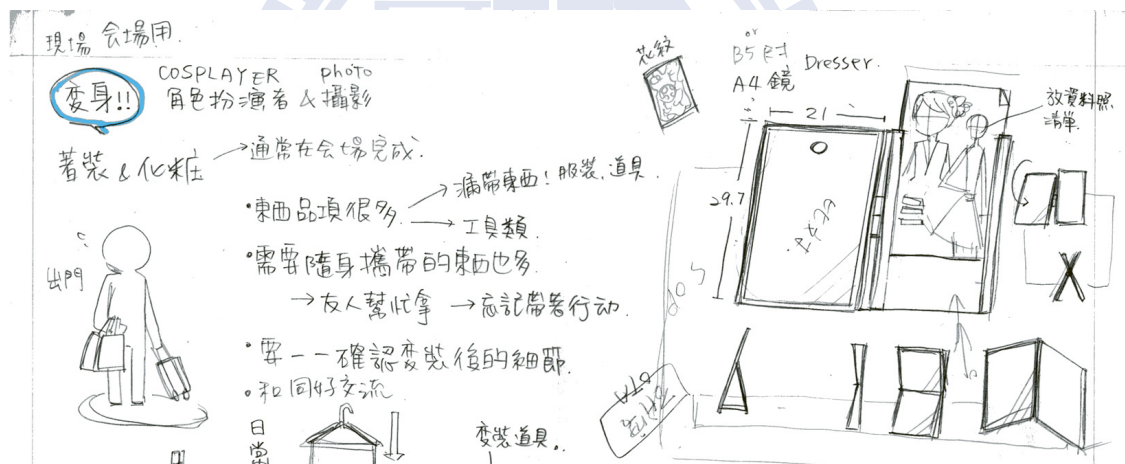 現場 会場用.
変身!!
COSPLAYER photo
角色扮演者 & 攝影
著裝 & 化粧 → 通常在会場完成.
・東西品項很多. → 漏帶東西! 服裝.道具.
→ 工具類.
・需要隨身攜帶的東西也多.
→ 友人幫忙拿 → 忘記帶著行动.
出門
・要一一確認変裝後的細節.
・和同好交流.
日常
変裝道具.
花紋
or
B5尺寸
A4 鏡
Dresser.
21
29.7
放資料照
清單.